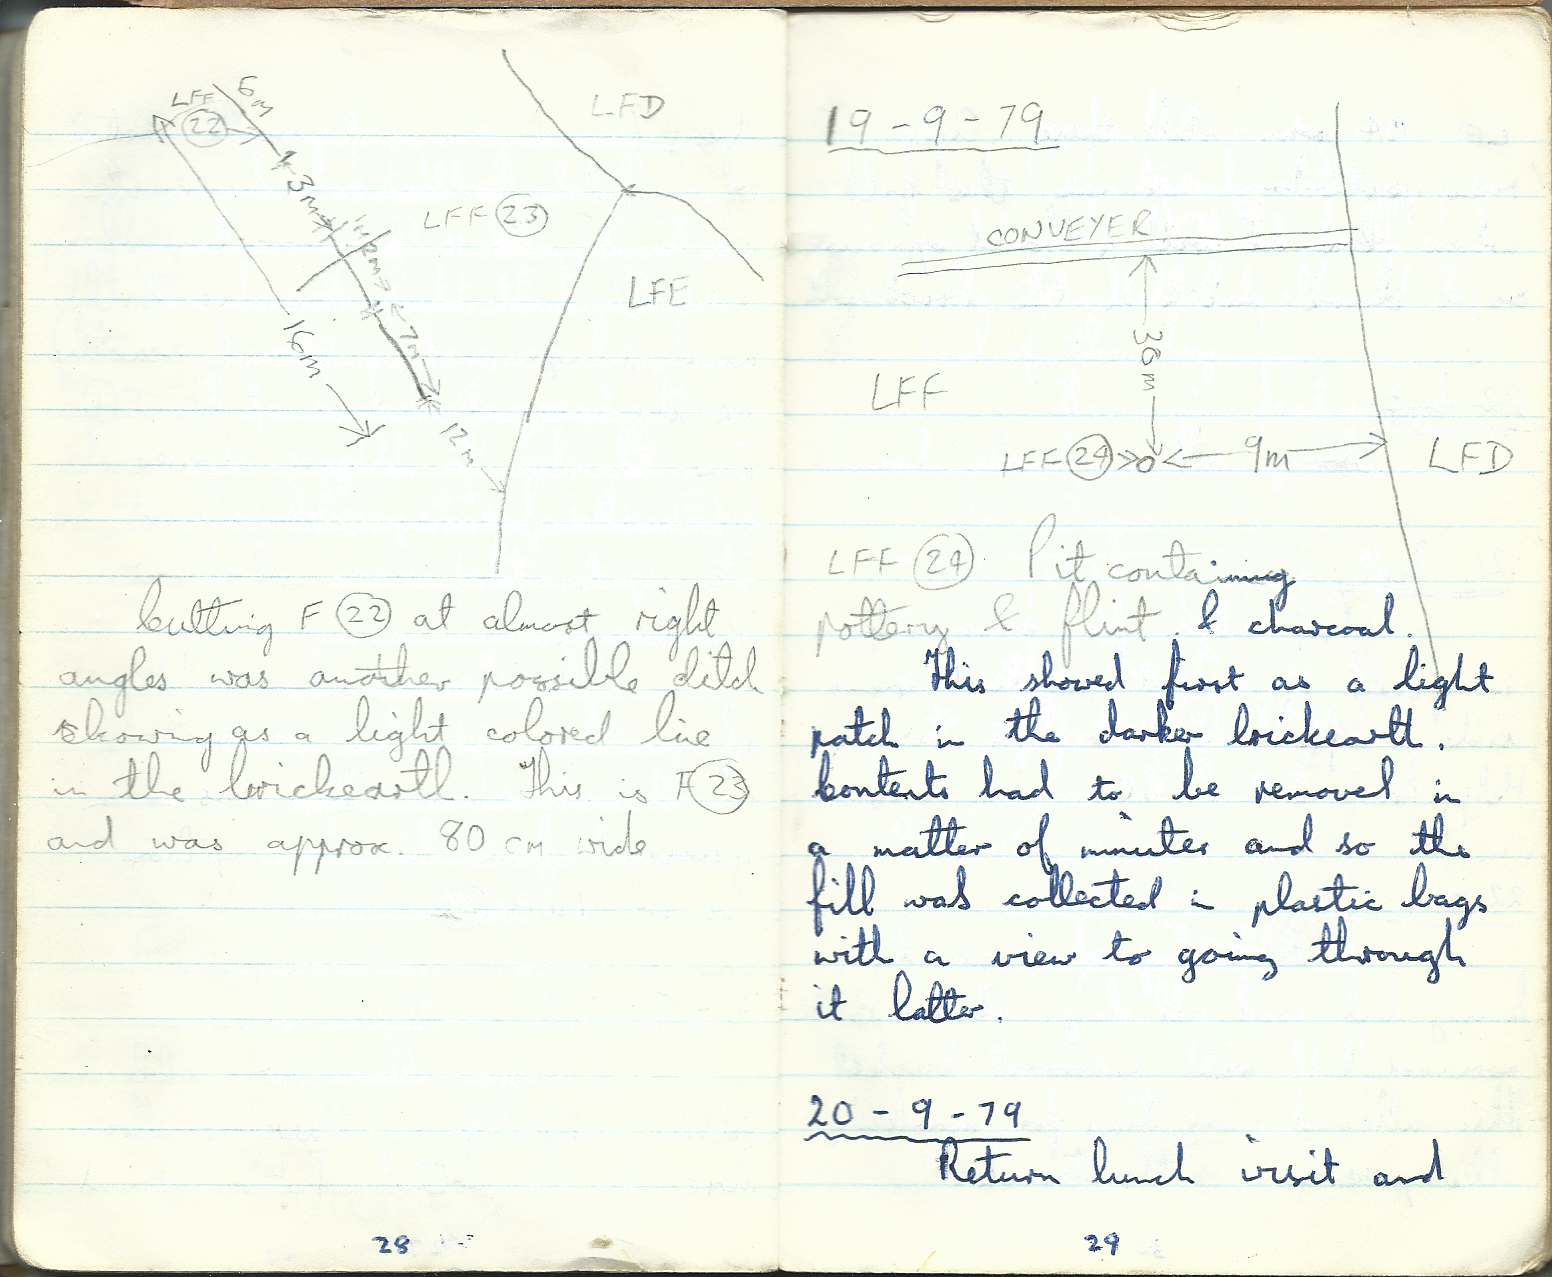 LFF
22
6m
3m
1m
2m
7m
12m
16m
LFF 23
LFD
LFE
Cutting F 22 at almost right
angles was another possible ditch
showing as a light colored line
in the brickearth. This is F 23
and was approx. 80 cm wide
28
19-9-79
CONVEYER
38m
LFF
LFF 24
9m
LFD
LFF 24 Pit containing
pottery & flint & charcoal.
This showed first as a light
patch in the darker brickearth.
Contents had to be removed in
a matter of minutes and so the
fill was collected in plastic bags
with a view to going through
it latter.
20-9-79
Return lunch visit and
29